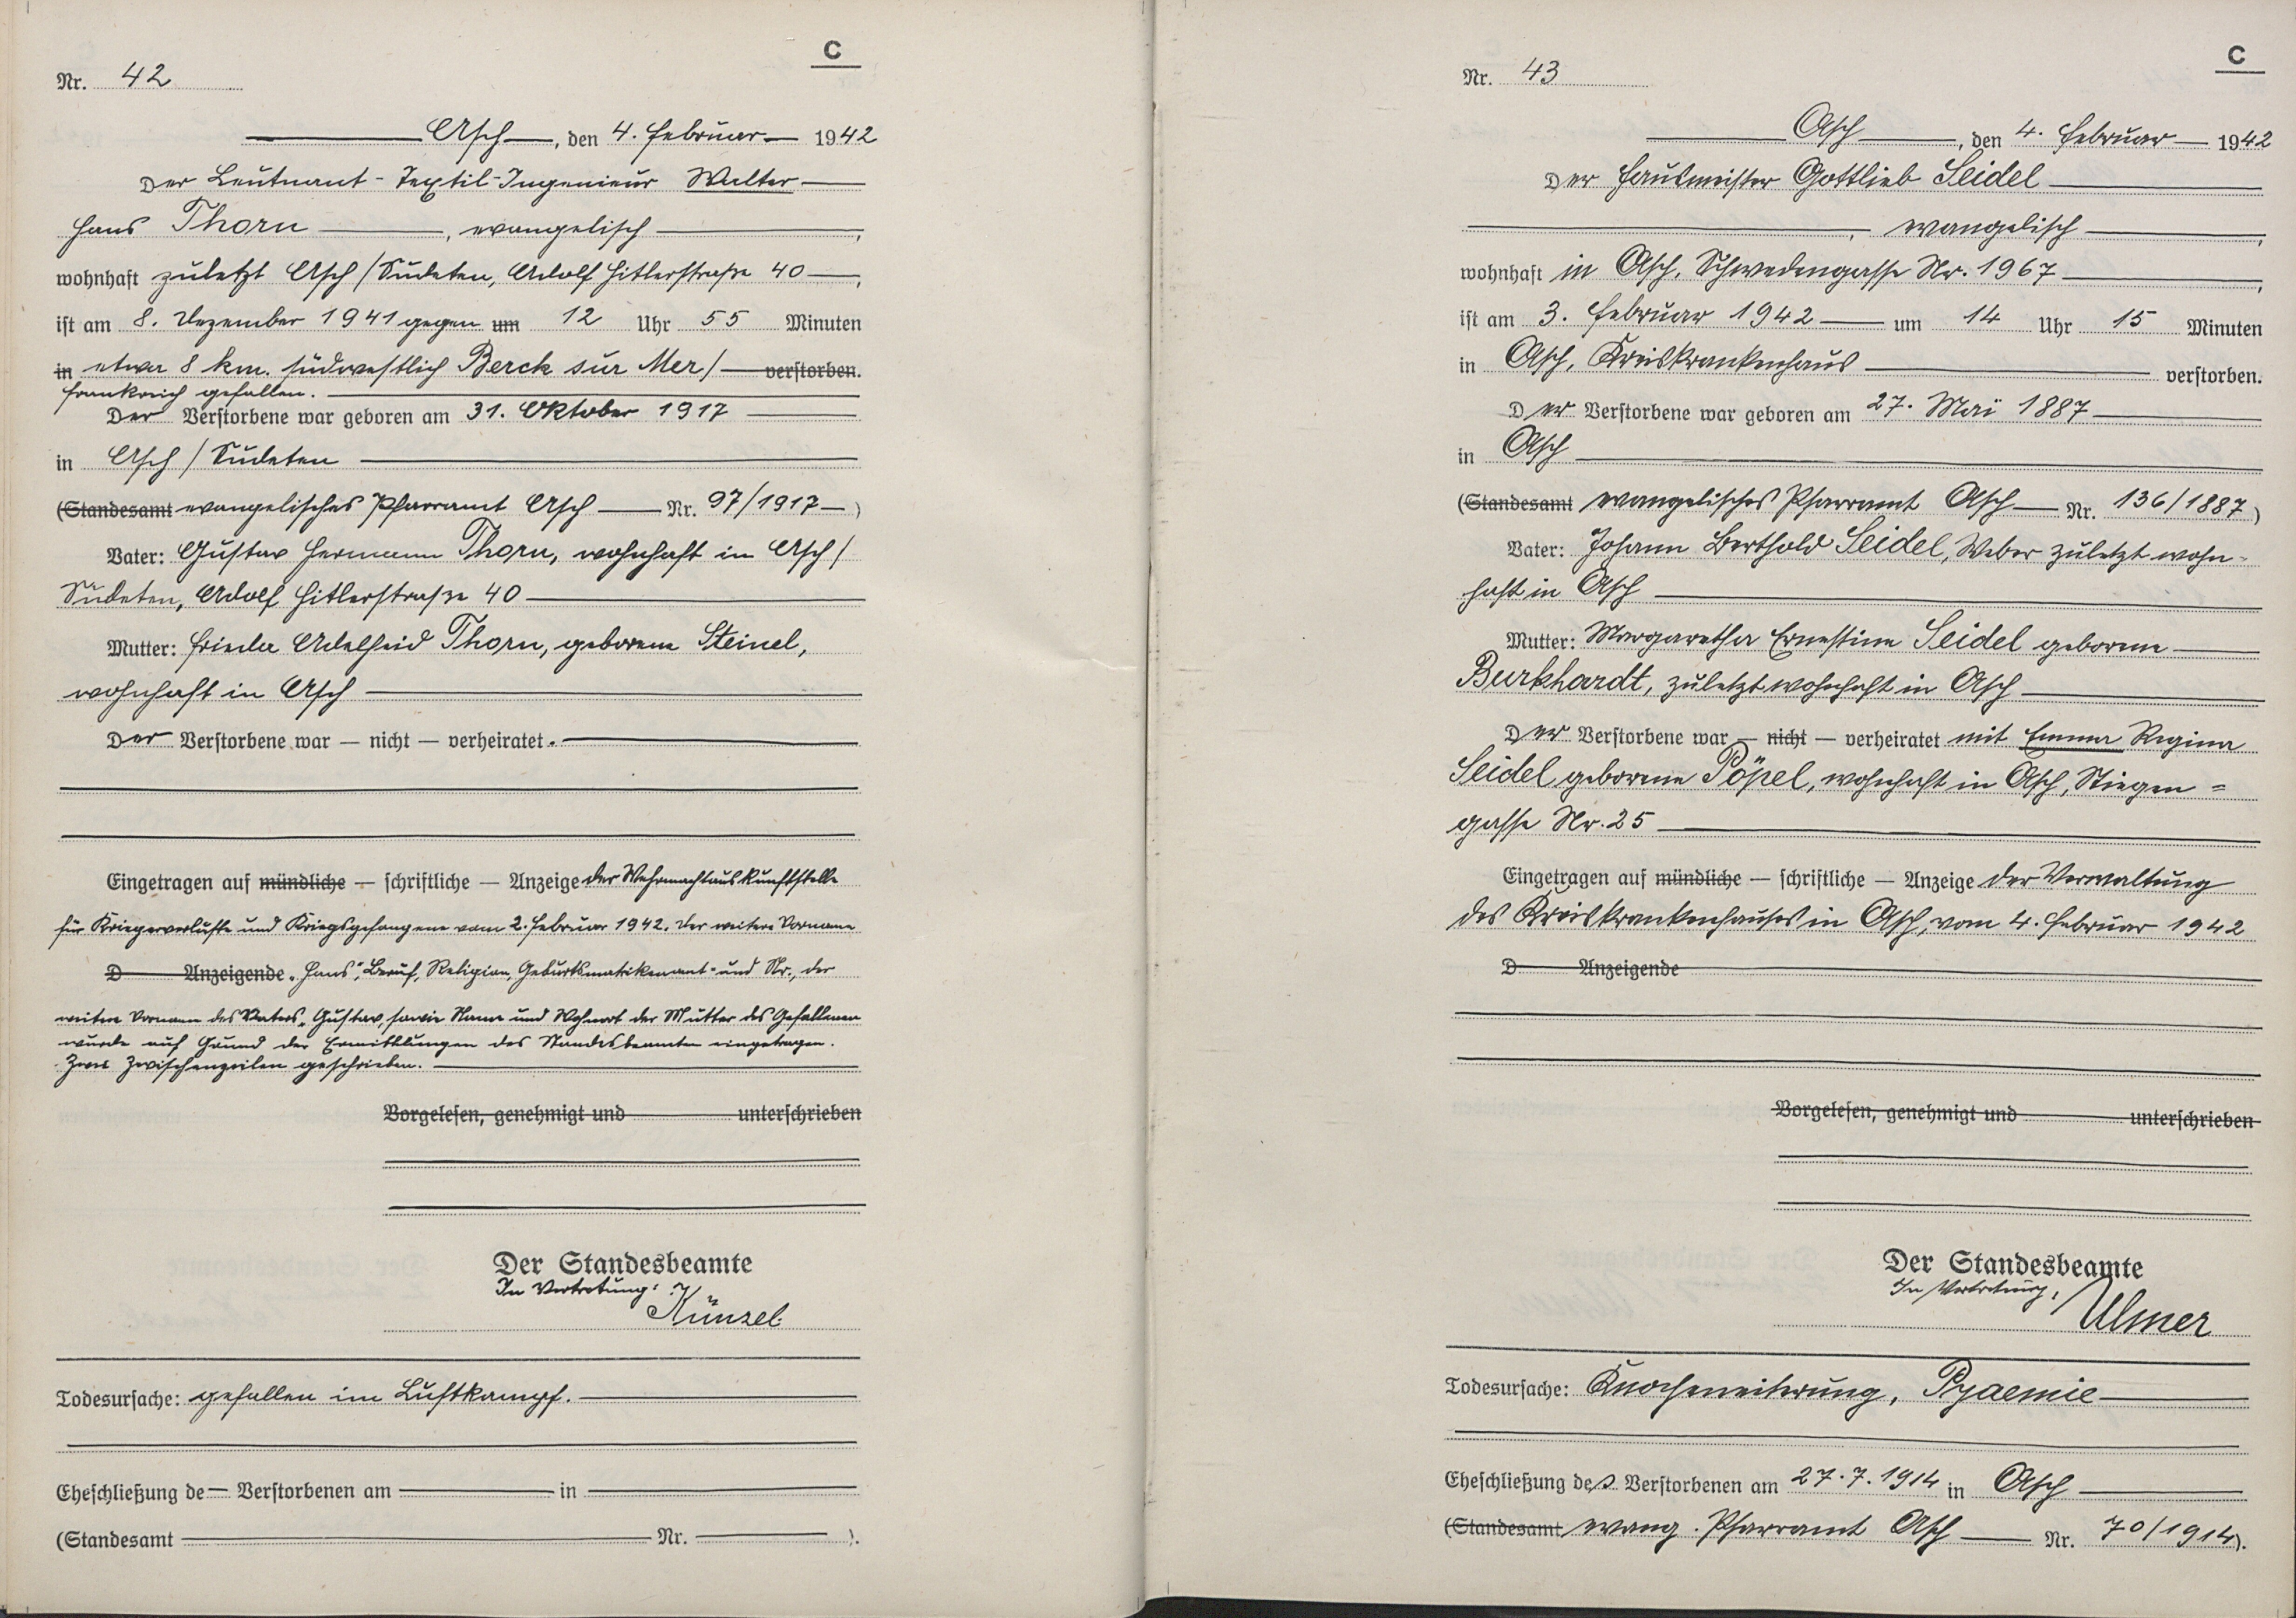 C
Nr. 42
Asch, den 4. Februar 1942
Der Leutnant-Textil-Ingenieur Walter
Hans Thorn, evangelisch,
wohnhaft zuletzt Asch/Sudeten, Adolf Hitlerstraße 40,
ist am 8. Dezember 1941 gegen um 12 Uhr 55 Minuten
in etwa 8 km. südwestlich Berck sur Mer/ verstorben.
Frankreich gefallen.
Der Verstorbene war geboren am 31. Oktober 1917
in Asch/Sudeten
(Standesamt evangelisches Pfarramt Asch Nr. 97/1917)
Vater: Gustav Hermann Thorn, wohnhaft in Asch/
Sudeten, Adolf Hitlerstraße 40
Mutter: Frieda Adelheid Thorn, geborene Steinel,
wohnhaft in Asch
Der Verstorbene war — nicht — verheiratet.
Eingetragen auf mündliche — schriftliche — Anzeige der Wehrmachtauskunftstelle
für Kriegerverluste und Kriegsgefangene vom 2. Februar 1942. Der weitere Vorname
D Anzeigende „Hans", Beruf, Religion, Geburtsmatrikenamt- und Nr., der
weitere Vorname des Vaters „Gustav, sowie Name und Wohnort der Mutter des Gefallenen
wurde auf Grund der Ermittlungen des Standesbeamten eingetragen.
Zwei Zwischenzeilen geschrieben.
Vorgelesen, genehmigt und unterschrieben
Der Standesbeamte
In Vertretung:
Künzel
Todesursache: gefallen im Luftkampf.
Eheschließung de Verstorbenen am in
(Standesamt Nr. ).
C
Nr. 43
Asch, den 4. Februar 1942
Der Hausmeister Gottlieb Seidel
, evangelisch,
wohnhaft in Asch, Schwedengasse Nr. 1967,
ist am 3. Februar 1942 um 14 Uhr 15 Minuten
in Asch, Kreiskrankenhaus verstorben.
Der Verstorbene war geboren am 27. Mai 1887
in Asch
(Standesamt evangelisches Pfarramt Asch Nr. 136/1887)
Vater: Johann Berthold Seidel, Weber zuletzt wohn-
haft in Asch
Mutter: Margaretha Ernestine Seidel geborene
Burkhardt, zuletzt wohnhaft in Asch
Der Verstorbene war — nicht — verheiratet mit Emma Regina
Seidel geborene Pöpel, wohnhaft in Asch, Stiegen=
gasse Nr. 25
Eingetragen auf mündliche — schriftliche — Anzeige der Verwaltung
des Kreiskrankenhauses in Asch, vom 4. Februar 1942
D Anzeigende
Vorgelesen, genehmigt und unterschrieben
Der Standesbeamte
In Vertretung,
Ulmer
Todesursache: Knocheneiterung, Pyaemie
Eheschließung des Verstorbenen am 27.7.1914 in Asch
(Standesamt evang. Pfarramt Asch Nr. 70/1914).